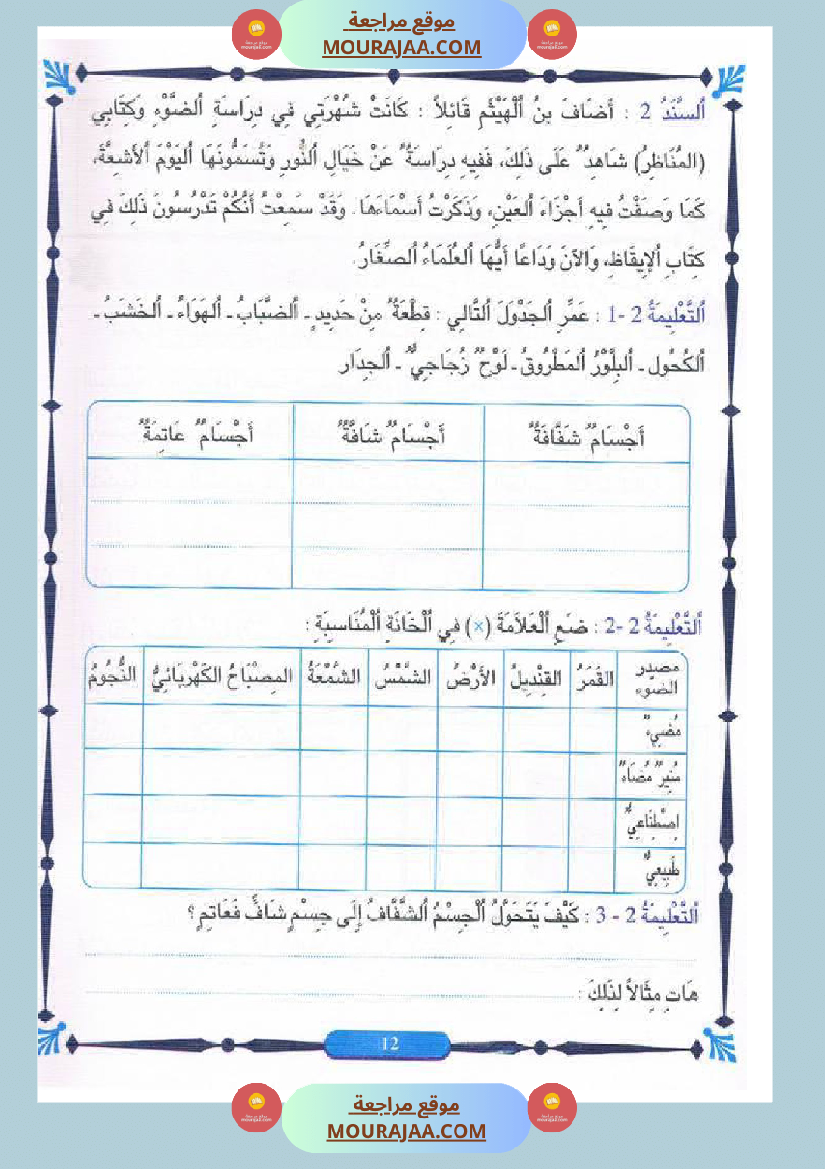 موقع مراجعة
MOURAJAA.COM
اَلسَّنَدُ 2 : أَضَافَ بِنُ اُلْهَيْثَمِ قَائِلاً : كَانَتْ شُهْرَتِي فِي دِرَاسَةِ اُلضَّوْءِ وَكِتَابِي
(المُنَاظِرُ) شَاهِدٌ عَلَى ذَلِكَ، فَفِيهِ دِرَاسَةٌ عَنْ خَيَالِ اُلنُّورِ وَتُسَمُّونَهَا اُليَوْمَ اُلأَشِعَّةَ،
كَمَا وَصَفْتُ فِيهِ أَجْزَاءَ اُلعَيْنِ، وَذَكَرْتُ أَسْمَاءَهَا. وَقَدْ سَمِعْتُ أَنَّكُمْ تَدْرُسُونَ ذَلِكَ فِي
كِتَابِ اُلإِيقَاظِ، وَالآنَ وَدَاعًا أَيُّهَا اُلعُلَمَاءُ اُلصِّغَارُ.
اَلتَّعْلِيمَةُ 2 -1 : عَمِّرِ اُلجَدْوَلَ اُلتَّالِي : قِطْعَةٌ مِنْ حَدِيدٍ ـ اَلضَّبَابُ ـ اَلهَوَاءُ ـ اَلخَشَبُ ـ
اَلكُحُول ـ اَلبِلَّوْرُ اُلمَطْرُوقُ ـ لَوْحٌ زُجَاجِيٌّ ـ اَلجِدَار
أَجْسَامٌ شَفَّافَةٌ
أَجْسَامٌ شَافَّةٌ
أَجْسَامٌ عَاتِمَةٌ
اَلتَّعْلِيمَةُ 2 -2 : ضَعِ اُلْعَلاَمَةَ (×) فِي اُلْخَانَةِ اُلْمُنَاسِبَةِ :
مصدر الضوء
القَمَرُ
القِنْدِيلُ
الأَرْضُ
الشَّمْسُ
الشَّمْعَةُ
المِصْبَاحُ الكَهْرَبَائِيُّ
النُّجُومُ
مُضِيءٌ
مُنِيرٌ مُضَاءٌ
اِصْطِنَاعِيٌّ
طَبِيعِيٌّ
اَلتَّعْلِيمَةُ 2 - 3 : كَيْفَ يَتَحَوَّلُ اُلْجِسْمُ اُلشَّفَّافُ إِلَى جِسْمٍ شَافٍّ فَعَاتِمٍ؟
هَاتِ مِثَالاً لِذَلِكَ :
12
موقع مراجعة
MOURAJAA.COM